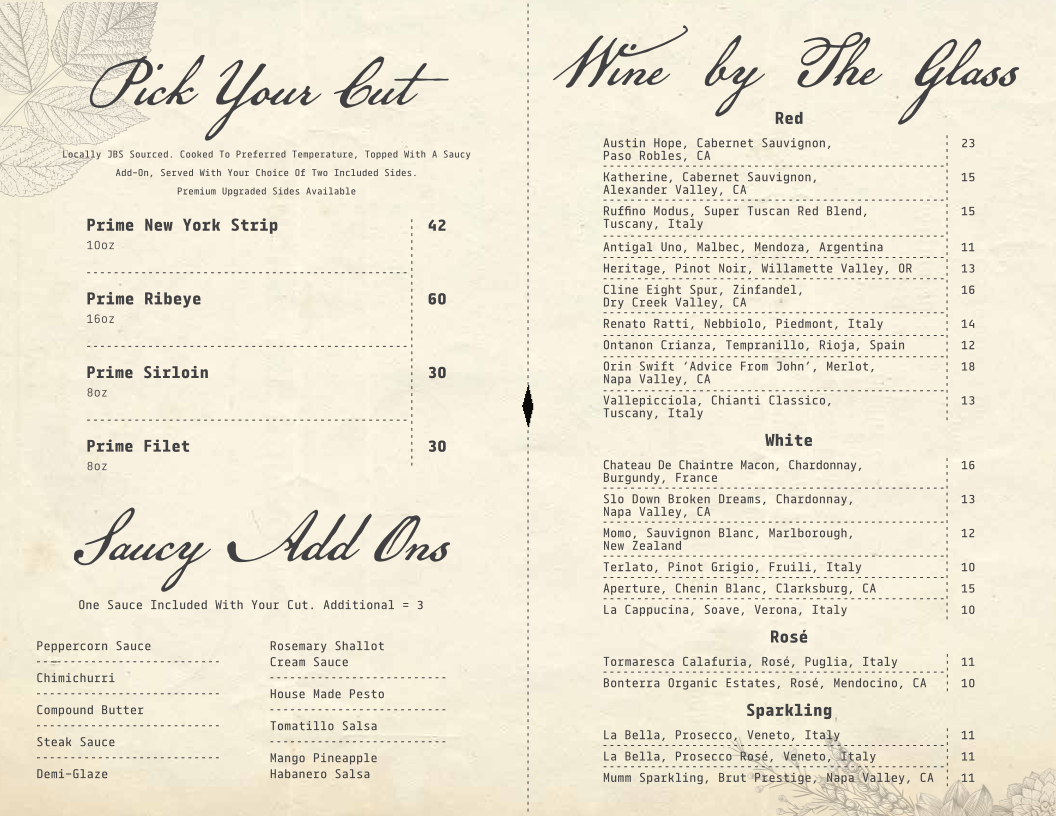 Pick Your Cut
Locally JBS Sourced. Cooked To Preferred Temperature, Topped With A Saucy
Add-On, Served With Your Choice Of Two Included Sides.
Premium Upgraded Sides Available
Prime New York Strip 42
10oz
Prime Ribeye 60
16oz
Prime Sirloin 30
8oz
Prime Filet 30
8oz
Saucy Add Ons
One Sauce Included With Your Cut. Additional = 3
Peppercorn Sauce
Chimichurri
Compound Butter
Steak Sauce
Demi-Glaze
Rosemary Shallot
Cream Sauce
House Made Pesto
Tomatillo Salsa
Mango Pineapple
Habanero Salsa
Wine by The Glass
Red
Austin Hope, Cabernet Sauvignon, 23
Paso Robles, CA
Katherine, Cabernet Sauvignon, 15
Alexander Valley, CA
Ruffino Modus, Super Tuscan Red Blend, 15
Tuscany, Italy
Antigal Uno, Malbec, Mendoza, Argentina 11
Heritage, Pinot Noir, Willamette Valley, OR 13
Cline Eight Spur, Zinfandel, 16
Dry Creek Valley, CA
Renato Ratti, Nebbiolo, Piedmont, Italy 14
Ontanon Crianza, Tempranillo, Rioja, Spain 12
Orin Swift ‘Advice From John’, Merlot, 18
Napa Valley, CA
Vallepicciola, Chianti Classico, 13
Tuscany, Italy
White
Chateau De Chaintre Macon, Chardonnay, 16
Burgundy, France
Slo Down Broken Dreams, Chardonnay, 13
Napa Valley, CA
Momo, Sauvignon Blanc, Marlborough, 12
New Zealand
Terlato, Pinot Grigio, Fruili, Italy 10
Aperture, Chenin Blanc, Clarksburg, CA 15
La Cappucina, Soave, Verona, Italy 10
Rosé
Tormaresca Calafuria, Rosé, Puglia, Italy 11
Bonterra Organic Estates, Rosé, Mendocino, CA 10
Sparkling
La Bella, Prosecco, Veneto, Italy 11
La Bella, Prosecco Rosé, Veneto, Italy 11
Mumm Sparkling, Brut Prestige, Napa Valley, CA 11